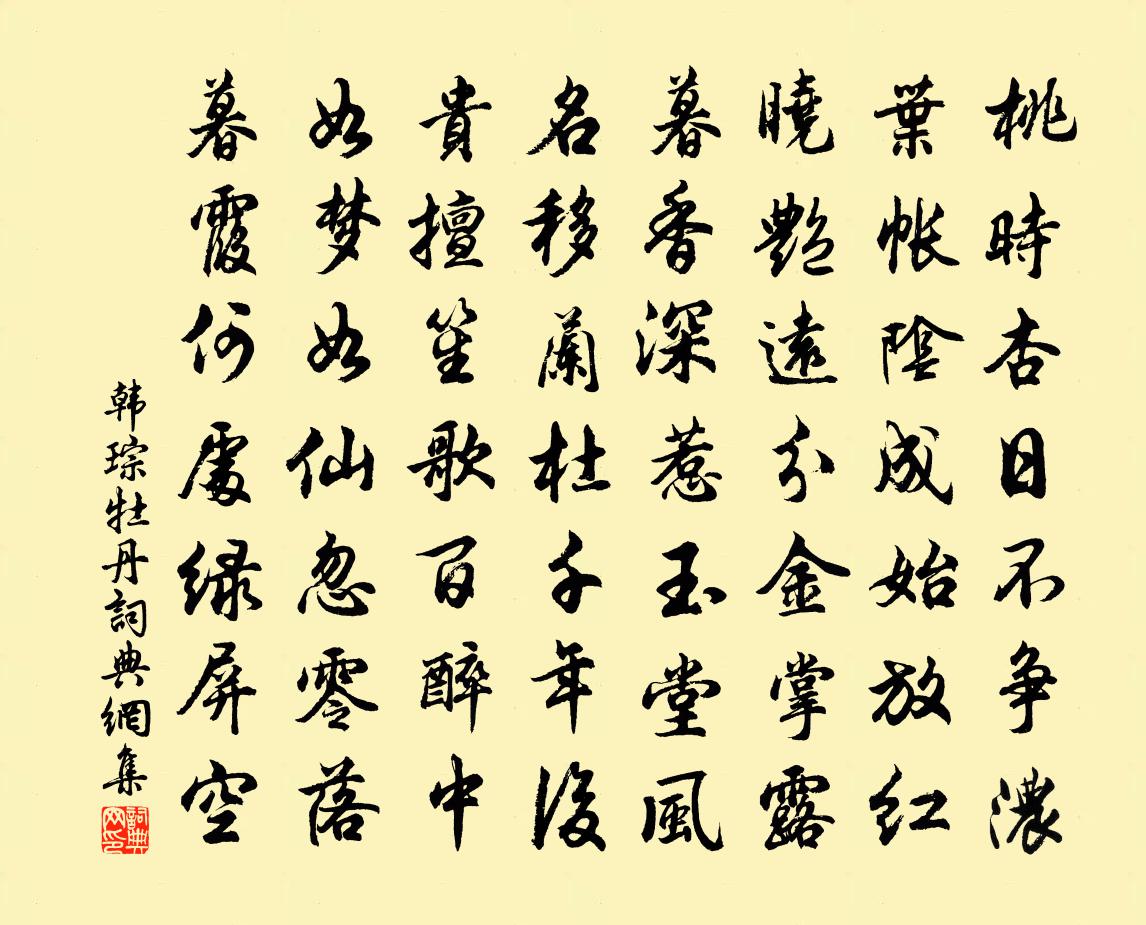 桃時杏日不争濃
葉帳陰成始放紅
曉艷遠分金掌露
暮香深惹玉堂風
名移蘭杜千年後
貴擅笙歌百醉中
如梦如仙忽零落
暮霞何處緑屏空
韩琮牡丹詞典網集
詞典网印